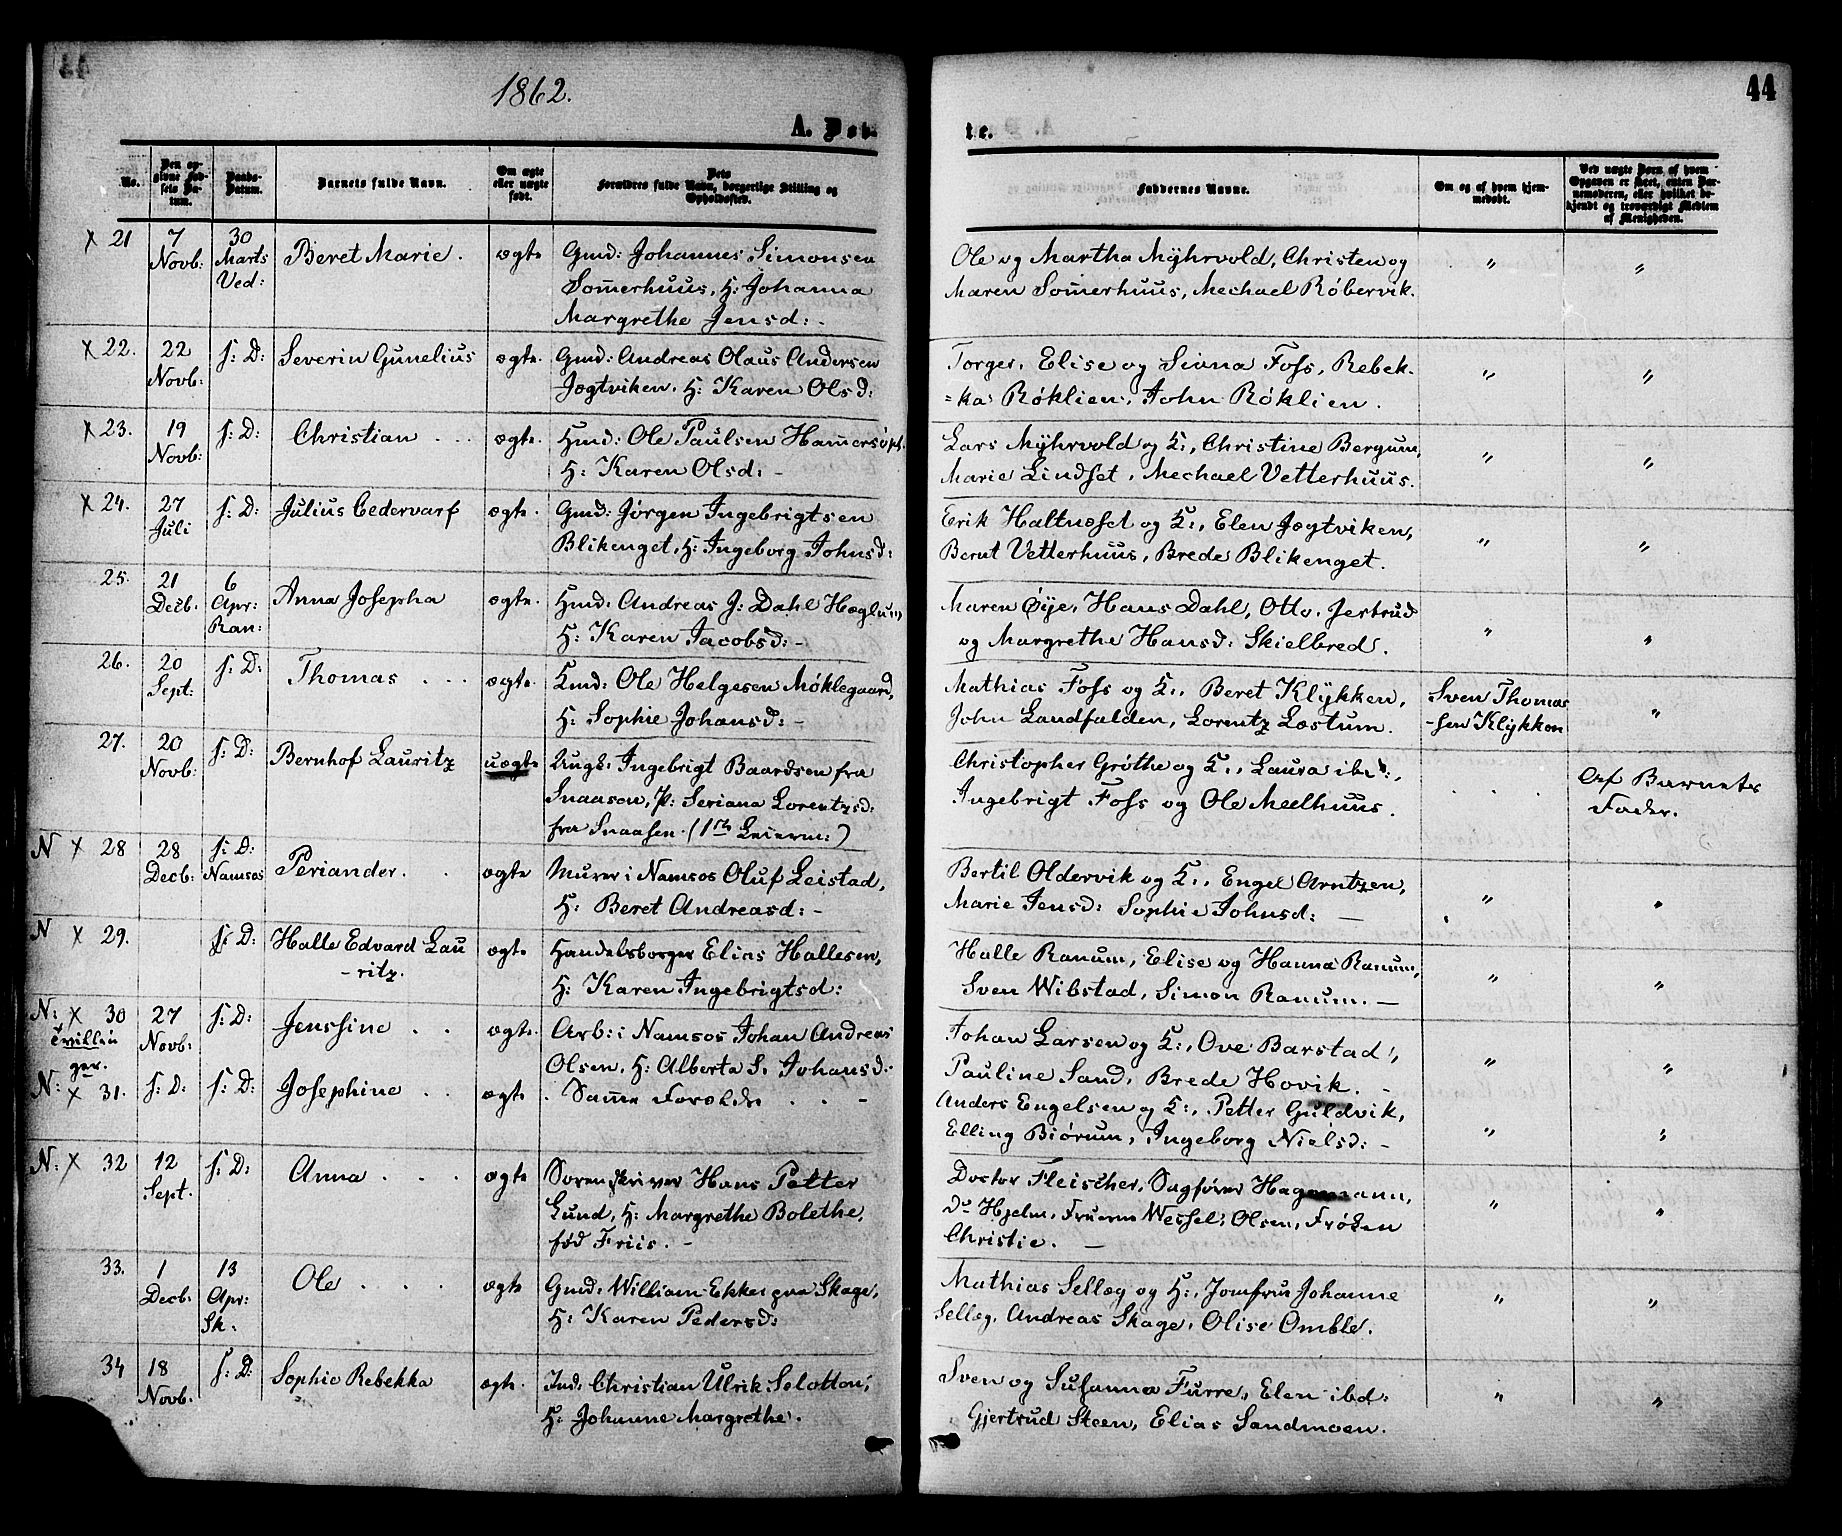 1862.
44
A. Døb-
te.
No.
Den op-
givne Fød-
sels Da-
tum.
Daabs-
Datum.
Barnets fulde Navn.
Om ægte
eller uægte
født.
Dets
Forældres fulde Navn, borgerlige Stilling og
Opholdssted.
Faddernes Navne.
Om og af hvem hjem-
medøbt.
Ved uægte Børn af hvem
Opgaven er skeet, enten Bar-
nemoderen, eller hvilket be-
kjendt og troværdigt Medlem
af Menigheden.
x 21
7
Novb:
30
Marts
Ved:
Beret Marie.
ægte
Gmd: Johannes Simonsen
Somerhuus, H: Johanna
Margrethe Jensd: -
Ole og Martha Myhrvold, Christen og
Maren Somerhuus, Mechael Röbervik.
" "
x 22.
22
Novb:
s: D:
Severin Gunelius
ægte.
Gmd: Andreas Olaus Andersen
Jægtviken, H: Karen Olsd:
Torger, Elise og Sivna Foss, Rebek-
=ka Röklien, John Röklien.
" "
x 23.
19
Novb:
s: D:
Christian . . .
ægte.
Hmd: Ole Paulsen
H: Karen Olsd: -
Lars Myhrvold og K:, Christine Bergum,
Marie Lindset, Mechael Vetterhuus.
" "
x 24.
27
Juli
s: D:
Julius Cedervarf
ægte.
Gmd: Jørgen Ingebrigtsen
Blikenget, H: Ingeborg Johnsd:
Erik Haltnæset og K:, Elen Jægtviken,
Berut Vetterhuus, Brede Blikenget.
" "
25.
21
Decb.
6
Apr:
Ran:
Anna Josepha
ægte.
Hmd: Andreas J: Dahl
H: Karen Jacobsd: -
Maren Øye, Hans Dahl, Otto, Jertrud
og Margrethe Hansd: Skielbred.
" "
26.
20
Sept:
s: D:
Thomas . . .
ægte.
Kmd: Ole Helgesen Møklegaard,
H: Sophie Johansd: -
Mathias Foss og K:, Beret Klykken,
John Landfalden, Lorentz Læstum.
Sven Thomas
-sen Klykken
"
27.
20
Novb:
s: D:
Bernhof Lauritz
uægte
Ungk: Ingebrigt Baardsen fra
Snaasen, P: Seriana Lorentzsd:
fra Snaasen. (1ste Leierm:)
Christopher Gröthe og K:, Laura ibd:,
Ingebrigt Foss og Ole Meelhuus.
. . .
Af Barnets
Fader.
N x 28
28
Decb:
s: D:
Namsos
Periander. .
ægte
Murer i Namsos Oluf Leistad,
H: Beret Andreasd: -
Bertil Oldervik og K:, Engel Arntzen,
Marie Jensd: Sophie Johnsd: -
" "
N x 29.
s: D:
Halle Edvard Lau
-ritz.
ægte
Handelsborger Elias Hallesen,
H: Karen Ingebrigtsd:
Halle Ranum, Elise og Hanna Ranum,
Sven Wibstad, Simon Ranum. -
" "
N: x 30
Tvillin
ger.
27
Novb:
s: D:
Jenssine . .
ægte.
Arb: i Namsos Johan Andreas
Olsen, H: Alberta S. Johansd:-
Johan Larsen og K:, Ove Barstad,
Pauline Sand, Brede Hovik. -
" "
N: x 31.
s: D:
s: D:
Josephine . .
ægte
. Samme Forældre . . -
Anders Engelsen og K:, Petter Guldvik,
Elling Biörum, Ingeborg Nielsd: -
" "
N: x 32
12
Sept.
s: D:
Anna . . .
ægte
Sorenskriver Hans Petter
Lund, H: Margrethe Bolethe,
fød Friis. -
Doctor Fleischer, Sagfører Hagemann,
Do Hjelm, Fruerne Wessel, Olsen, Frøken
Christie. -
" "
33.
1
Decb:
13
Apr:
Sk:
Ole . . .
ægte
Gmd: William Ekker paa Skage,
H: Karen Pedersd:
Mathias Sellæg og H:, Jomfru Johanne
Sellæg, Andreas Skage, Olise Omble.
" "
34
18
Novb.
s: D:
Sophie Rebekka
ægte.
Ind: Christian Ulrik
H: Johanne Margrethe.
Sven og Susanna Furre, Elen ibd:
Gjertrud Steen, Elias Sandmoen.
" "